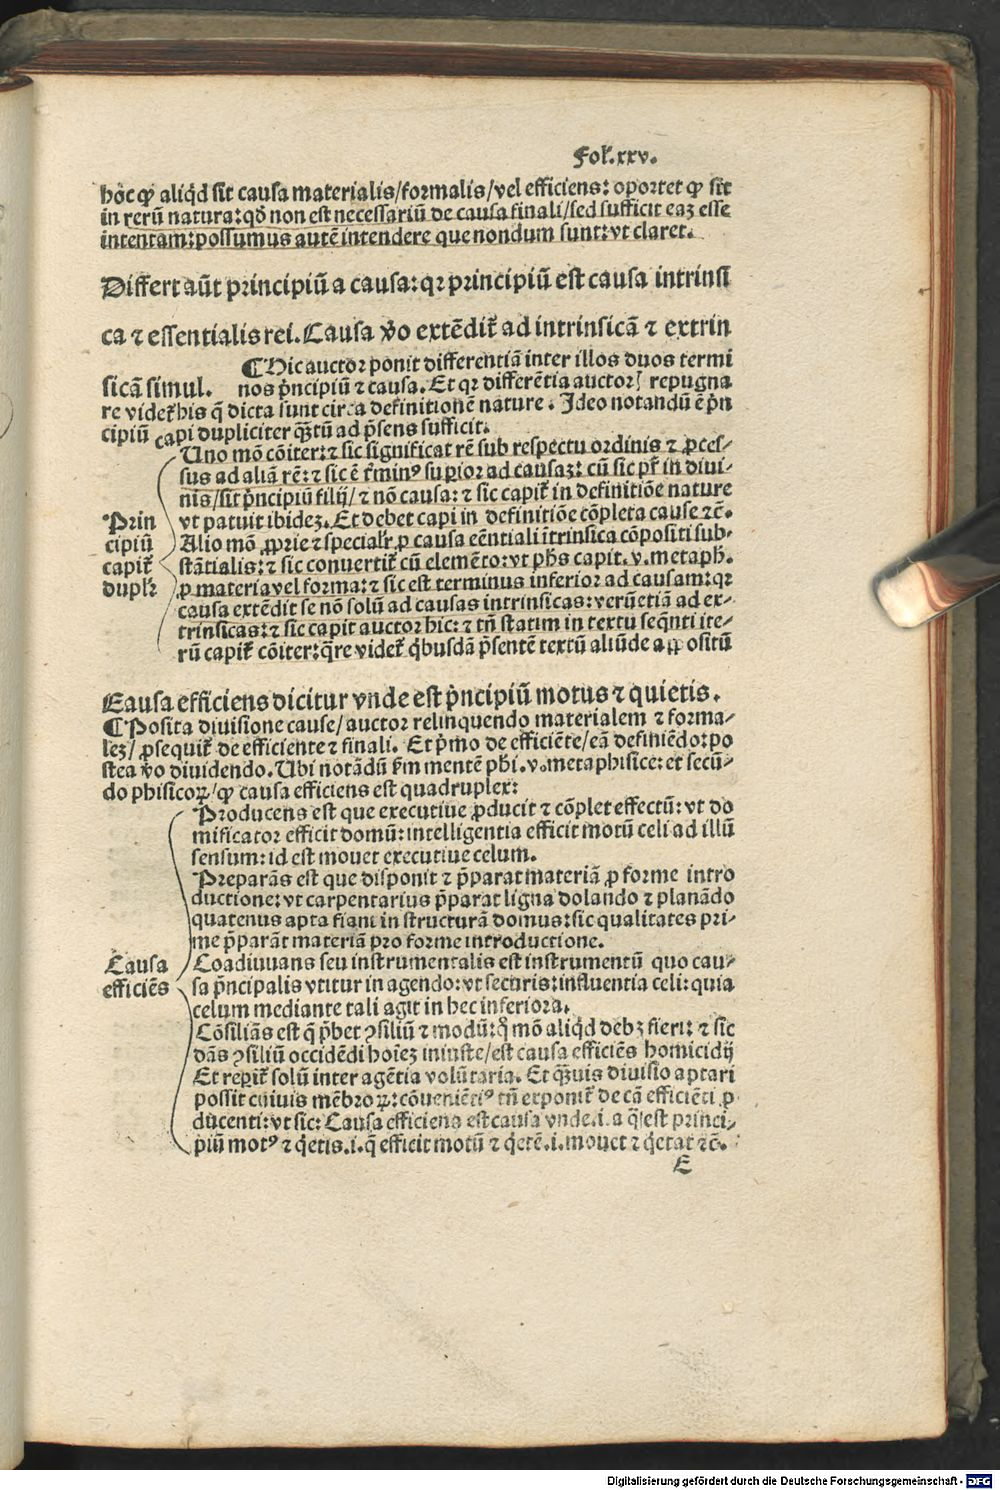 Fol. xxv.
hōc ꝙ aliqͥd sit causa materialis/formalis/vel efficiens: oportet ꝙ sit
in rerū natura: qđ non est necessariū de causa finali/sed sufficit eaꝫ esse
intentam: possumus autē intendere que nondum sunt: vt claret.
Differt aūt principiū a causa: qꝛ principiū est causa intrinsi
ca ⁊ essentialis rei. Causa v̓o extēdit̃ ad intrinsicā ⁊ extrin
¶ Hic auctor ponit differentiā inter illos duos termi
sicā simul. nos pͥncipiū ⁊ causa. Et qꝛ differētia auctorꝭ repugna
re videt̃ his q̄ dicta sunt circa definitionē nature. Ideo notandū ē pͥn
cipiū capi dupliciter qꝫtū ad p̄sens sufficit.
Uno mō cōiter: ⁊ sic significat rē sub respectu ordinis ⁊ ꝓces-
sus ad aliā rē: ⁊ sic ē t̃minꝰ superior ad causaꝫ: cū sic pt̃ in diui-
nis/sit pͥncipiū filij/⁊ nō causa: ⁊ sic capit̃ in definitiōe nature
vt patuit ibideꝫ. Et debet capi in definitiōe cōpleta cause ⁊c̄.
Prin
cipiū
capit̃
duplr̃
Alio mō ꝓprie ⁊ specialr̃ ꝓ causa eēntiali ītrinsica cōpositi sub-
stātialis: ⁊ sic conuertit̃ cū elemēto: vt ph̄s capit. v. metaph̄.
ꝓ materia vel forma: ⁊ sic est terminus inferior ad causam: qꝛ
causa extēdit se nō solū ad causas intrinsicas: verū etiā ad ex-
trinsicas: ⁊ sic capit auctor hic: ⁊ tn̄ statim in textu seqn̄ti ite-
rū capit̃ cōiter: q̄re videt̃ qͥbusdā p̄sentē textū aliūde apꝓositū
Causa efficiens dicitur vnde est pͥncipiū motus ⁊ quietis.
¶ Posita diuisione cause/auctor relinquendo materialem ⁊ forma-
leꝫ/ꝓsequit̃ de efficiente ⁊ finali. Et pͥmo de efficiēte/eā definiēdo: po
stea v̓o diuidendo. Ubi notādū ẜm mentē phi. v. metaphisice: et secū-
do phisicoꝝ/ꝙ causa efficiens est quadruplex:
Producens est que executiue ꝓducit ⁊ cōplet effectū: vt do
mificator efficit domū: intelligentia efficit motū celi ad illū
sensum: id est mouet executiue celum.
Preparās est que disponit ⁊ p̄parat materiā ꝓ forme intro
ductione: vt carpentarius p̄parat ligna dolando ⁊ planādo
quatenus apta fiant in structurā domus: sic qualitates pri-
me p̄parāt materiā pro forme introductione.
Causa
efficiēs
Coadiuuans seu instrumentalis est instrumentū quo cau-
sa pͥncipalis vtitur in agendo: vt securis: influentia celi: quia
celum mediante tali agit in hec inferiora.
Cōsiliās est q̄ p̄bet ꝯsiliū ⁊ modū: qͦ mō aliqͥd debꝫ fieri: ⁊ sic
dās ꝯsiliū occidēdi hoīeꝫ iniuste/est causa efficiēs homicidij
Et reperit̃ solū inter agētia volūtaria. Et qꝫuis diuisio aptari
possit cuiuis mēbroꝝ: cōueniētiꝰ tn̄ exponit̃ de cā efficiēti ꝓ
ducenti: vt sic: Causa efficiens est causa vnde .i. a q̄ est princi-
piū motꝰ ⁊ qͥetis .i. q̄ efficit motū ⁊ qͥetē .i. mouet ⁊ qͥetat ⁊c̄.
E
Digitalisierung gefördert durch die Deutsche Forschungsgemeinschaft - DFG